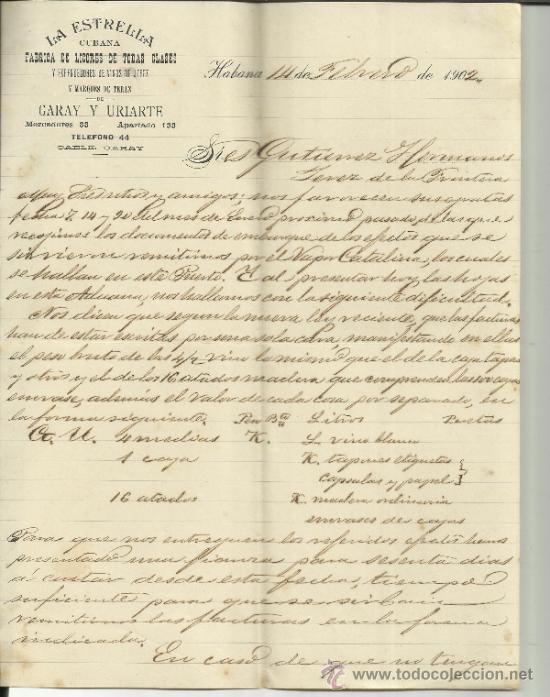 LA ESTRELLA
CUBANA
FABRICA DE LICORES DE TODAS CLASES
Y MARQUES DE TEREX
DE
GARAY Y URIARTE
Mercaderes 33 Apartado 133
TELEFONO 44
CABLE. GARAY
Habana 14 de Febrero de 1902.
Sres Gutierrez Hermanos
Jerez de la Frontera
Muy Sres ntros y amigos; nos favorecen sus gratas
fecha 7, 14 y 20 del mes de Enero proximo pasado, de las que
recojimos los documentos de embarque de los efectos que se
sirvieron remitirnos por el Vapor Catalina, los cuales
se hallan en este Puerto. Y al presentar hoy las hojas
en esta Aduana, nos hallamos con la siguiente dificultad.
Nos dicen que segun la nueva ley reciente, que las facturas
han de estar escritas por una sola cara, manifestando en ellas
el peso bruto de los 4/2 vino lo mismo que el de la caja tapas
y otros y el de los 16 atados madera que comprenden las cajas
envase, ademas el valor de cada cosa por separado, en
la forma siguiente. Peso Bto Litros Pesetas
G. U. 4 medias K. L. vino blanco
1 caja K. tapones etiquetas
capsulas y papel
16 atados K. madera ordinaria
envases de cajas
Para que nos entreguen los referidos efectos hemos
presentado una fianza para sesenta dias
a contar desde esta fecha, tiempo
suficiente para que se sirvan
remitirnos las facturas en la forma
indicada.
En caso de que no tengan
todocoleccion.net